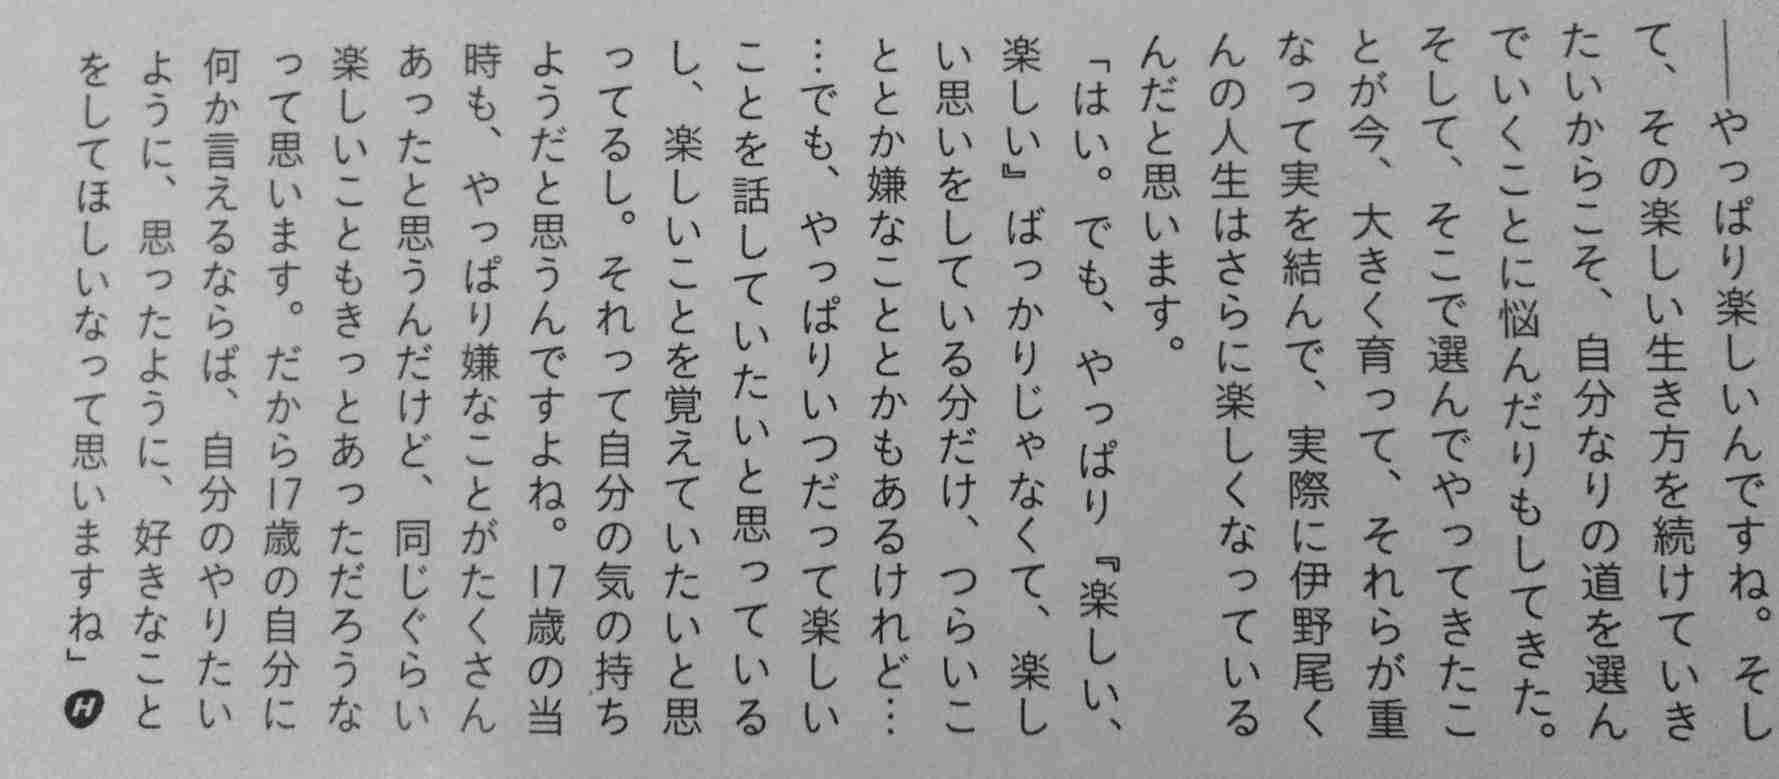 ――やっぱり楽しいんですね。そし
て、その楽しい生き方を続けていき
たいからこそ、自分なりの道を選ん
でいくことに悩んだりもしてきた。
そして、そこで選んでやってきたこ
とが今、大きく育って、それらが重
なって実を結んで、実際に伊野尾く
んの人生はさらに楽しくなっている
んだと思います。
「はい。でも、やっぱり『楽しい、
楽しい』ばっかりじゃなくて、楽し
い思いをしている分だけ、つらいこ
ととか嫌なこととかもあるけれど…
…でも、やっぱりいつだって楽しい
ことを話していたいと思っている
し、楽しいことを覚えていたいと思
ってるし。それって自分の気の持ち
ようだと思うんですよね。17歳の当
時も、やっぱり嫌なことがたくさん
あったと思うんだけど、同じぐらい
楽しいこともきっとあっただろうな
って思います。だから17歳の自分に
何か言えるならば、自分のやりたい
ように、思ったように、好きなこと
をしてほしいなって思いますね」H